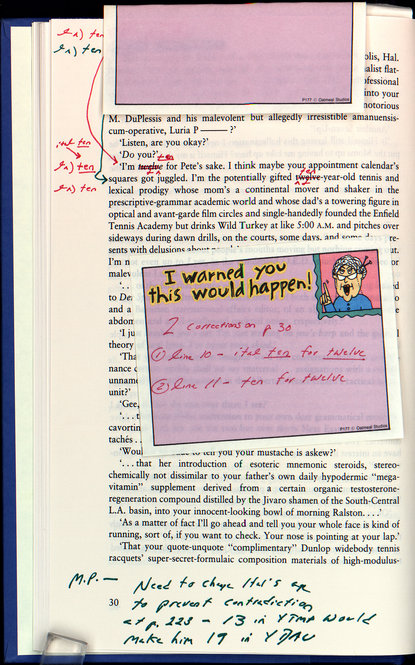 ten
ten
P177 © Oatmeal Studios
olis, Hal.
alist flat-
ofessional
into your
notorious
M. DuPlessis and his malevolent but allegedly irresistible amanuensis-
cum-operative, Luria P———?’
‘Listen, are you okay?’
‘Do you?’
ten
‘I’m twelve for Pete’s sake. I think maybe your appointment calendar’s
ital ten
ten
squares got juggled. I’m the potentially gifted twelve-year-old tennis and
ten
ten
lexical prodigy whose mom’s a continental mover and shaker in the
prescriptive-grammar academic world and whose dad’s a towering figure in
optical and avant-garde film circles and single-handedly founded the Enfield
Tennis Academy but drinks Wild Turkey at like 5:00 A.M. and pitches over
sideways during dawn drills, on the courts, some days, and some days
sents with delusions about
I’m n
malev
‘. .
to De
and a
abdom
‘I ju
theory
‘Tha
nance c
unnam
unit?’
‘Gee,
‘. . . t
cavortin
tachés . .
I warned you
this would happen!
2 corrections on p 30
① line 10 – ital ten for twelve
② line 11 – ten for twelve
P177 © Oatmeal Studios
‘Woul tell you your mustache is askew?’
‘. . . that her introduction of esoteric mnemonic steroids, stereo-
chemically not dissimilar to your father’s own daily hypodermic “mega-
vitamin” supplement derived from a certain organic testosterone-
regeneration compound distilled by the Jivaro shamen of the South-Central
L.A. basin, into your innocent-looking bowl of morning Ralston. . . .’
‘As a matter of fact I’ll go ahead and tell you your whole face is kind of
running, sort of, if you want to check. Your nose is pointing at your lap.’
‘That your quote-unquote “complimentary” Dunlop widebody tennis
racquets’ super-secret-formulaic composition materials of high-modulus-
M.P. — Need to change Hal's age
30
to prevent contradiction
at p. 223 – 13 in YTMP would
make him 19 in YDAU